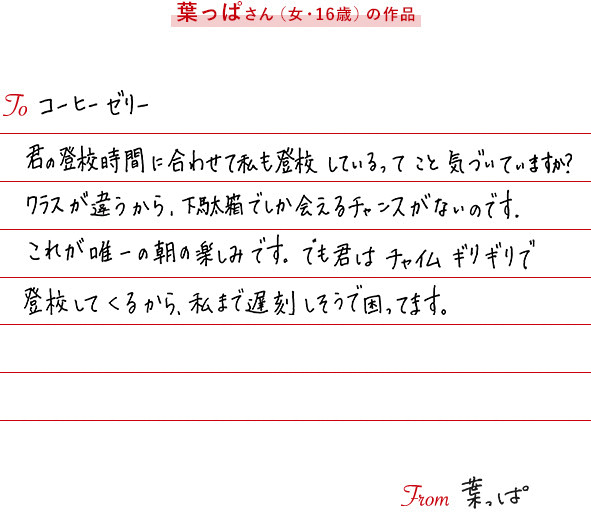 葉っぱさん（女・16歳）の作品
To コーヒーゼリー
君の登校時間に合わせて私も登校しているってこと気づいていますか？
クラスが違うから、下駄箱でしか会えるチャンスがないのです。
これが唯一の朝の楽しみです。でも君はチャイムギリギリで
登校してくるから、私まで遅刻しそうで困ってます。
From 葉っぱ